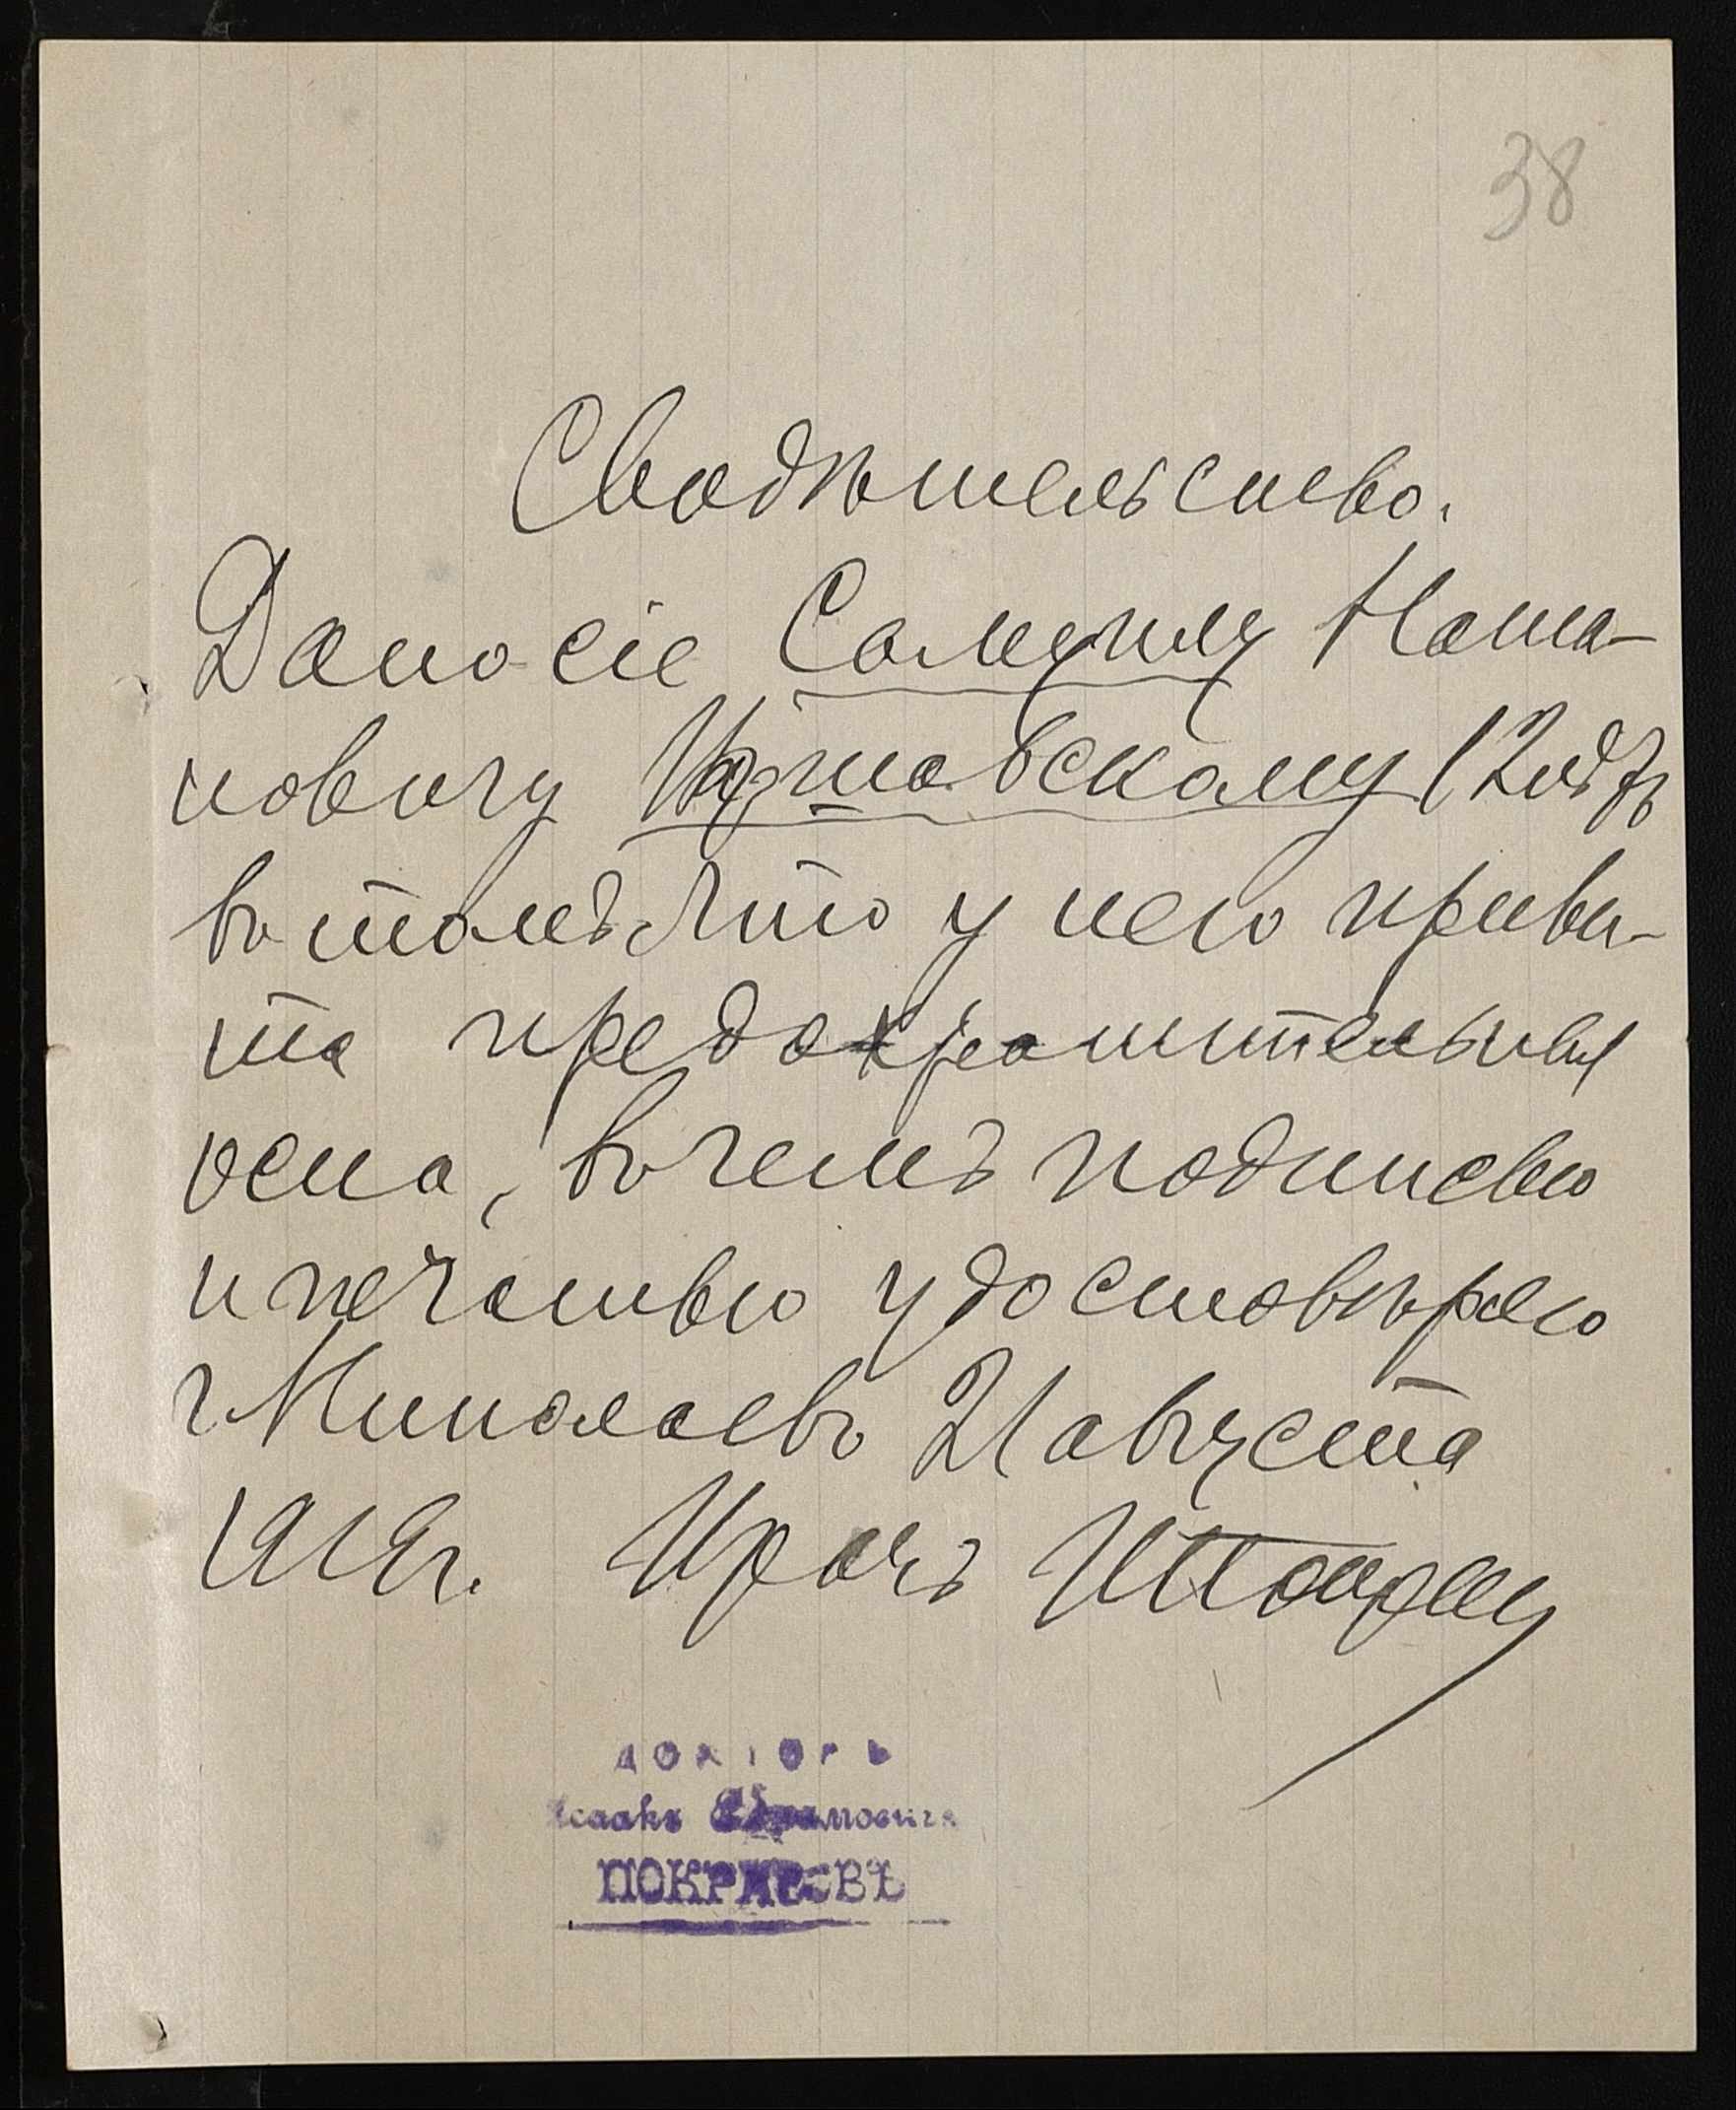 38
Свидѣтельство.
Дано сіе Самуилу Ната-
новичу
въ томъ что у него приви-
та предохранительная
оспа, въ чемъ подписью
и печатью удостовѣряю
г Николаевъ 21 августа
Врачъ
ДОКТОРЪ
Исаакъ